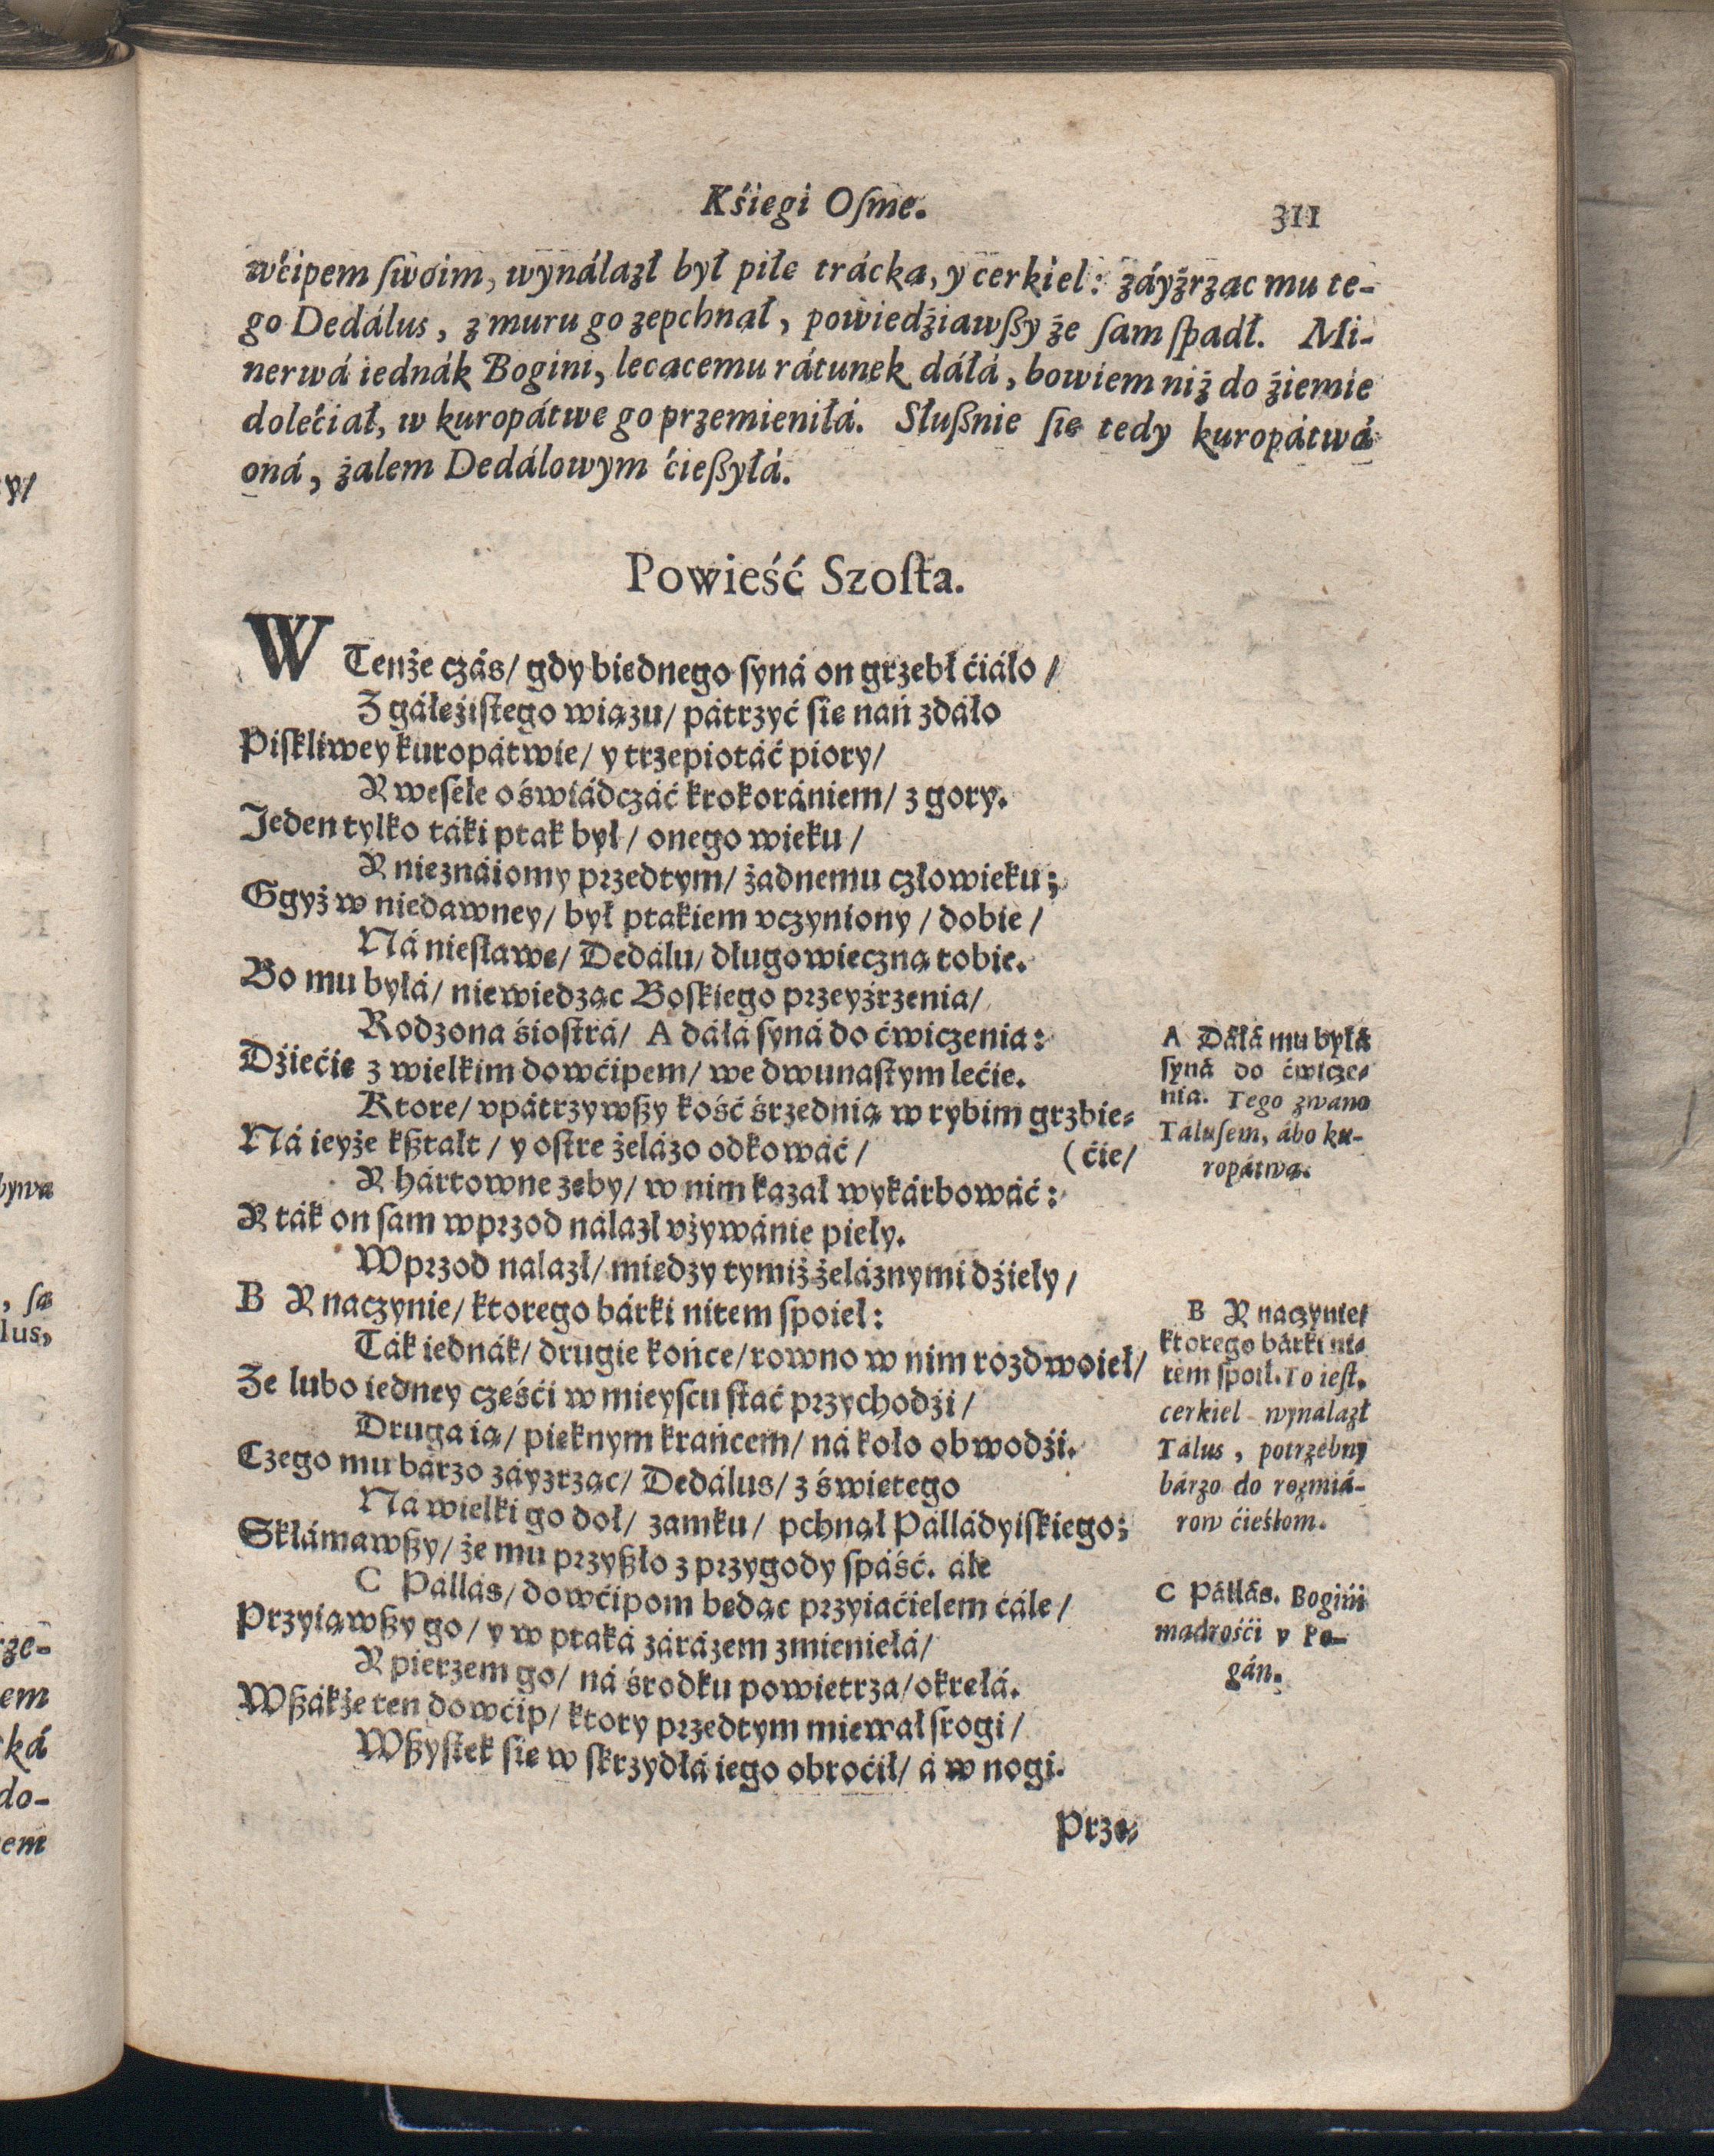 Kśiegi Oſme.
311
wćipem ſwoim, wynálazł był piłe trácka, y cerkiel: záyźrzac mu te-
go Dedálus, z muru go zepchnał, powiedźiawßy że ſam ſpadł. Mi-
nerwá iednák Bogini, lecacemu rátunek dáłá, bowiem niż do źiemie
dolećiał, w kuropátwe go przemieniłá. Słußnie ſie tedy kuropátwá
oná, żalem Dedálowym ćießyłá.
Powieść Szoſta.
W Tenże czás/ gdy biednego ſyná on grzebł ćiáło/
Z gáłeźiſtego wiązu/ pátrzyć ſie nań zdáło
Piſkliwey kuropátwie/ y trzepiotáć piory/
Y weſele oświádczáć krokorániem/ z gory.
Jeden tylko táki ptak był/ onego wieku/
Y nieznáiomy przedtym/ żadnemu człowieku;
Ggyż w niedawney/ był ptakiem vczyniony/ dobie/
Ná nieſławe/ Dedálu/ długowieczną tobie.
Bo mu byłá/ niewiedząc Boſkiego przeyźrzenia/
Rodzona śioſtrá/ A dáłá ſyná do ćwiczenia:
Dźiećie z wielkim dowćipem/ we dwunaſtym lećie.
Ktore/ vpátrzywßy kość śrzednią w rybim grzbie-
Ná ieyże kßtałt/ y oſtre żelázo odkowáć/
(ćie/
Y hártowne zeby/ w nim kazał wykárbowáć:
Y ták on ſam wprzod nalazł vżywánie pieły.
Wprzod nalazł/ miedzy tymiż żeláznymi dźieły/
B Y naczynie/ ktorego bárki nitem ſpoieł:
Ták iednák/ drugie końce/ rowno w nim rozdwoieł/
Że lubo iedney cześći w mieyſcu ſtać przychodźi/
Druga ią/ pieknym krańcem/ ná koło obwodźi.
Czego mu bárzo záyzrząc/ Dedálus/ z świetego
Ná wielki go doł/ zamku/ pchnął Pálládyiſkiego;
Skłámawßy/ że mu przyßło z przygody ſpáść. ále
C Pállás/ dowćipom bedąc przyiaćielem ćále/
Przyiąwßy go/ y w ptaká zárázem zmieniełá/
Y pierzem go/ ná środku powietrza/ okrełá.
Wßákże ten dowćip/ ktory przedtym miewał ſrogi/
Wßyſtek ſie w ſkrzydłá iego obroćił/ á w nogi.
Prze-
A Dáłá mu byłá
ſyná do ćwicze-
nia. Tego zwano
Táluſem, ábo ku-
ropátwą.
B Y naczynie/
ktorego bárki ni-
tem ſpoił. To ieſt,
cerkiel wynálazł
Tálus, potrzebny
bárzo do rozmiá-
row ćieślom.
C Pállás. Bogini
madrośći v Po-
gán.